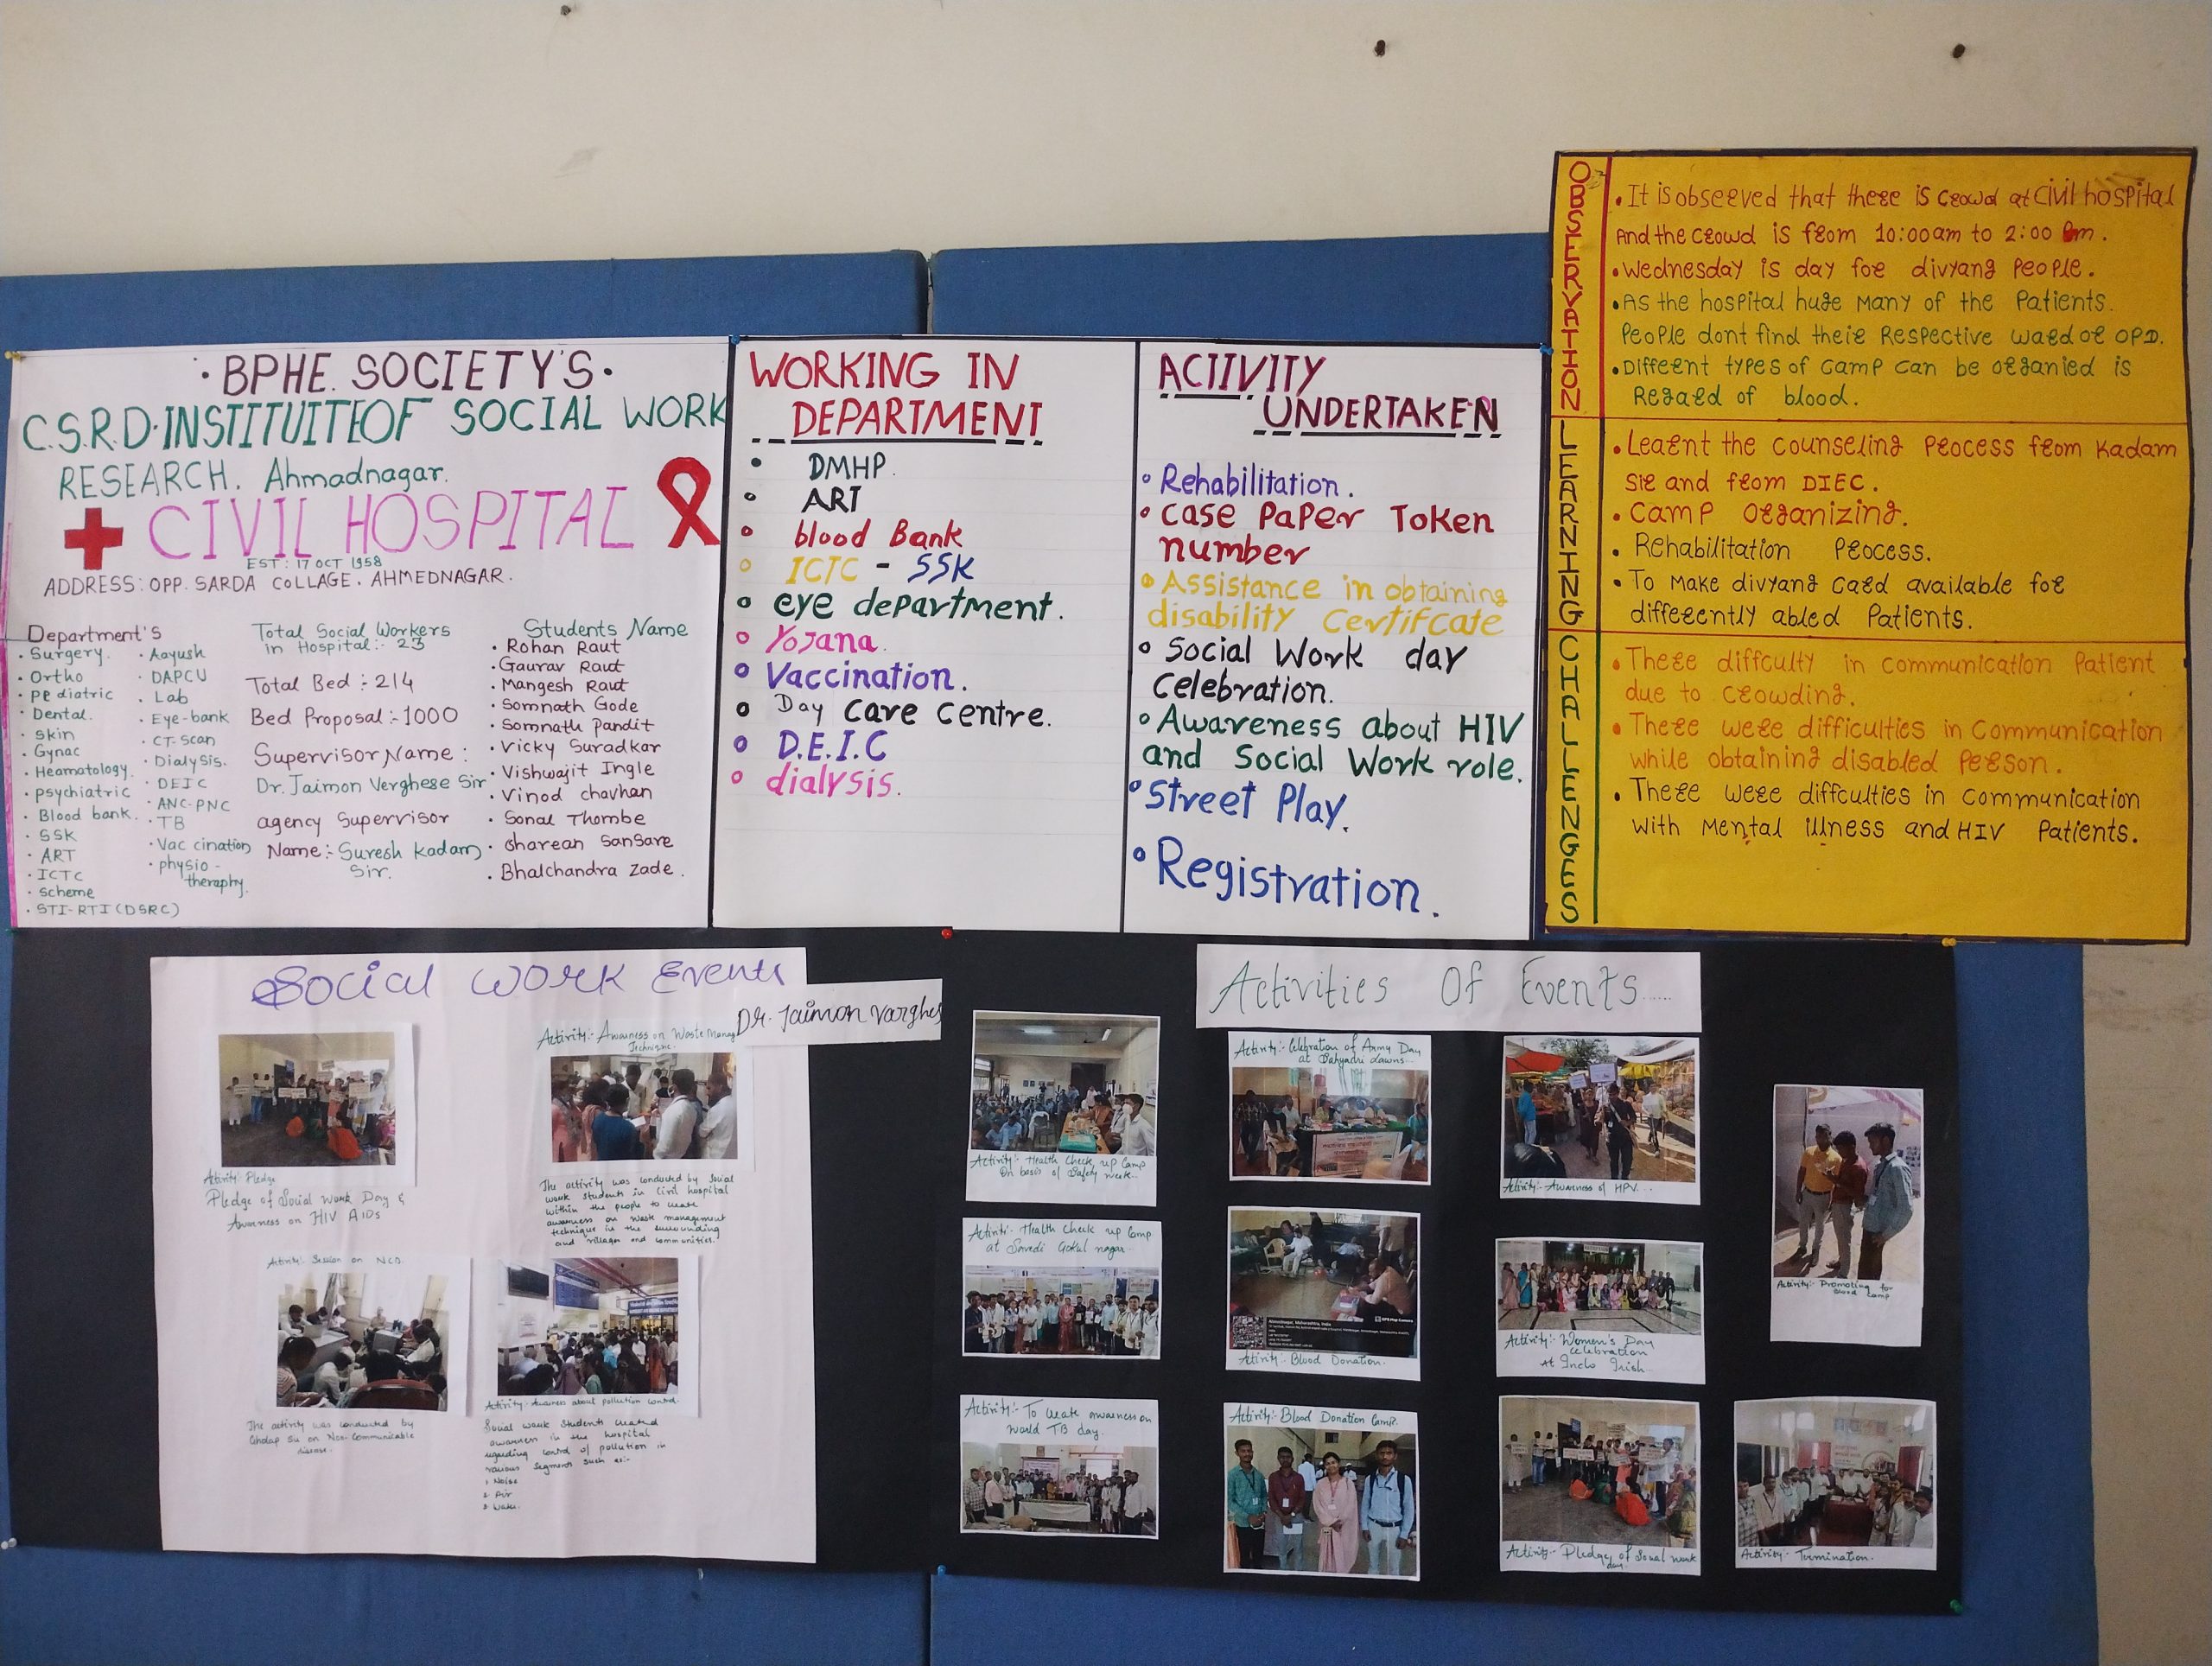 · BPHE. SOCIETY'S ·
C.S.R.D. INSTITUITEOF SOCIAL WORK
RESEARCH. Ahmadnagar.
CIVIL HOSPITAL
EST : 17 OCT 1958
ADDRESS: OPP. SARDA COLLAGE. AHMEDNAGAR.
Department's
· Surgery.
· Ortho
· Pediatric
· Dental.
· Skin
· Gynac
· Heamatology.
· psychiatric
· Blood bank.
· SSK
· ART
· ICTC
· Scheme
· STI-RTI (DSRC)
· Aayush
· DAPCU
· Lab
· Eye-bank
· CT-Scan
· Dialysis.
· DEIC
· ANC-PNC
· TB
· Vaccination
· physio -
theraphy.
Total Social Workers
in Hospital:- 23
Total Bed :- 214
Bed Proposal :- 1000
Supervisor Name :
Dr. Jaimon Verghese Sir
agency Supervisor
Name:- Suresh Kadam
Sir.
Students Name
· Rohan Raut
· Gaurav Raut
· Mangesh Raut
· Somnath Gode
· Somnath Pandit
· Vicky Suradkar
· Vishwajit Ingle
· Vinod chavhan
· Sonal Thombe
· Sharean Sansare
· Bhalchandra Zade.
WORKING IN
DEPARTMENT
DMHP.
ART
blood Bank
ICTC - SSK
eye department.
Yojana.
Vaccination.
Day care centre.
D.E.I.C
dialysis.
ACTIVITY
UNDERTAKEN
Rehabilitation.
case Paper Token
number
Assistance in obtaining
disability Certifcate
Social Work day
celebration.
Awareness about HIV
and Social Work role.
Street Play.
Registration.
OBSERVATION
· It is observed that there is crowd at Civil hospital
And the crowd is from 10:00am to 2:00 Pm.
· Wednesday is day for divyang People.
· As the hospital huge Many of the Patients.
People dont find their Respective ward or OPD.
· Differnt types of camp can be organied is
Regard of blood.
LEARNING
· Learnt the counseling Process from Kadam
sir and from DIEC.
· Camp Organizing.
· Rehabilitation Process.
· To Make divyang card available for
differently abled Patients.
CHALLENGES
· There diffculty in communication Patient
due to crowding.
· There were difficulties in Communication
while obtaining disabled Person.
· There were diffculties in Communication
with Mental illness and HIV Patients.
Social Work Events
Dr. Jaimon Varghes
Activity:- Pledge
Pledge of Social Work Day &
Awarness on HIV AIDs
Activity:- Awarness on Waste Manag
Technique.
The activity was conducted by Social
work students in Civil hospital
within the people to create
awarness on waste management
technique in the surrounding
and villages and communities.
Activity:- Session on NCD.
The activity was conducted by
Gholap Sir on Non-Communicable
disease.
Activity:- Awarness about pollution control.
Social work students created
awarness in the hospital
regarding control of pollution in
various segments such as:-
1 Noise
2 Air
3 Water.
Activities Of Events......
Activity:- Health Check up Camp
On basis of Safety week...
Activity:- Celebration of Army Day
at Sahyadri dawns...
Activity:- Awarness of HPV...
Activity:- Promoting for
Blood Camp
Activity:- Health Check up Camp
at Savedi Gokul nagar...
Ahmednagar, Maharashtra, India
GPS Map Camera
Activity:- Blood Donation.
Activity:- Women's Day
celebration
At Inclo Irish
Activity:- To create awarness on
World TB day.
Activity:- Blood Donation Camp.
Activity:- Pledge of Social work
day.
Activity:- Termination.